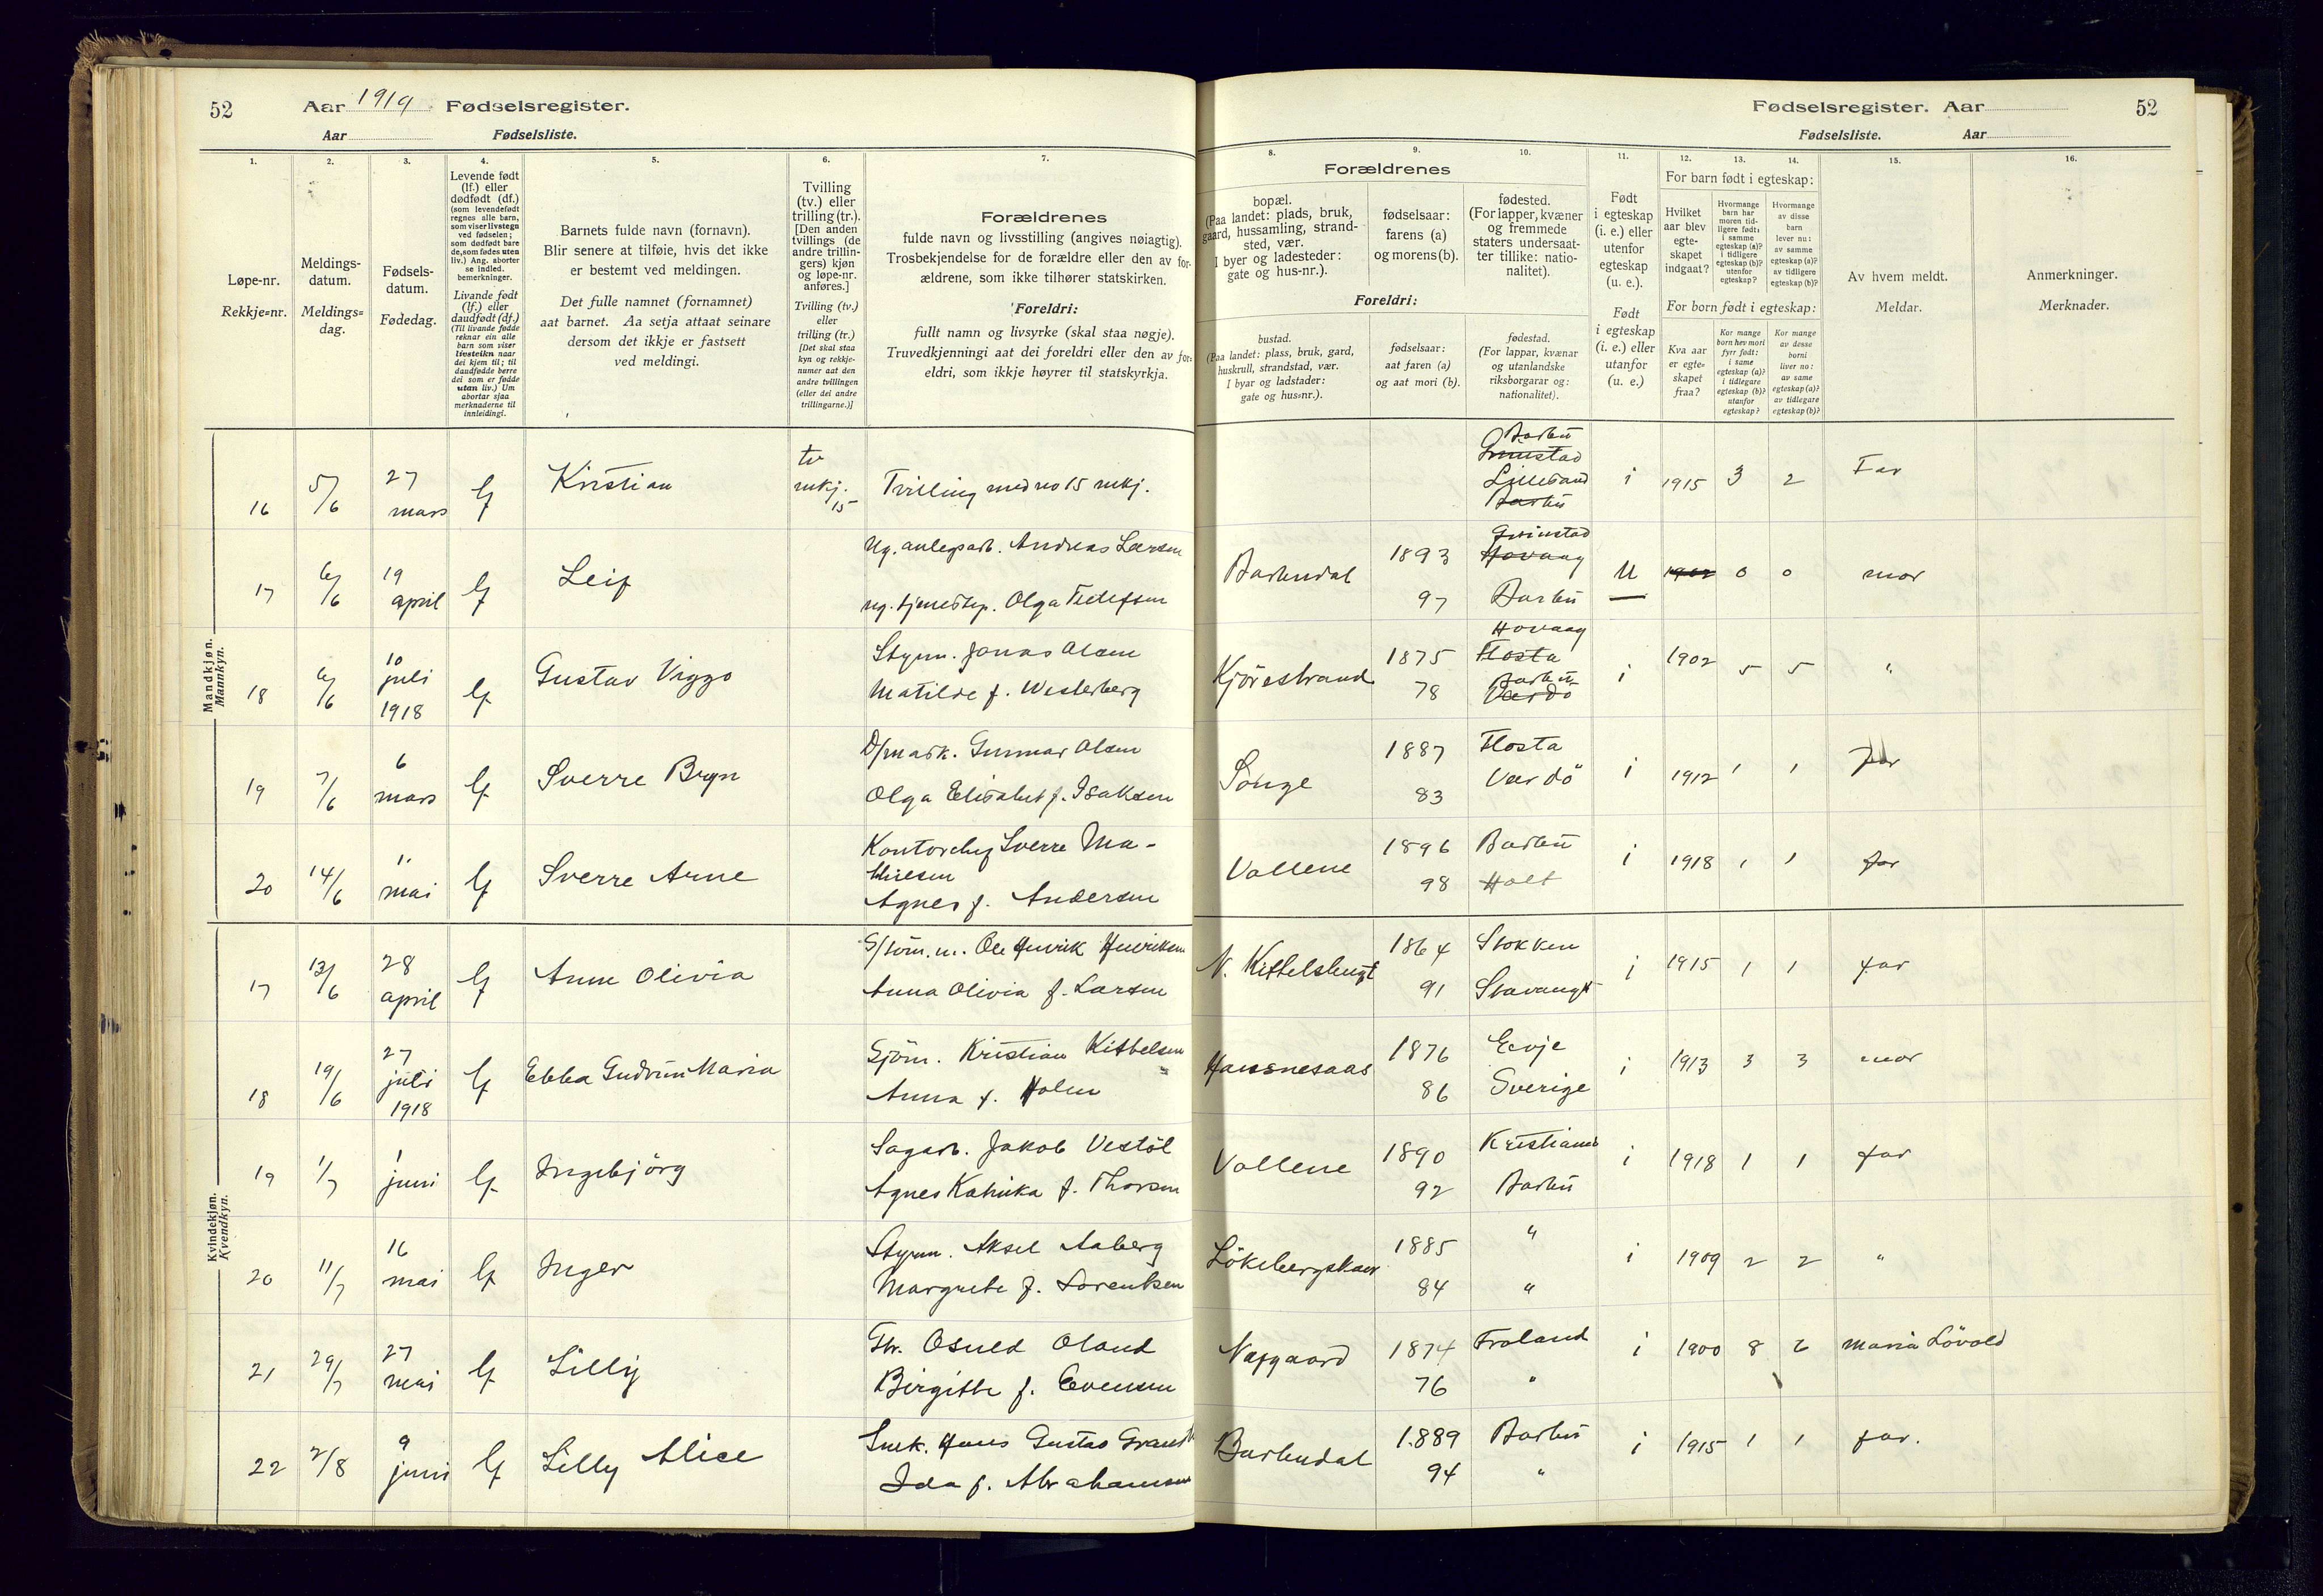 52 Aar 1919 Fødselsregister.
Aar Fødselsliste.
Fødselsregister. Aar 52
Fødselsliste. Aar
1. 2. 3. 4. 5. 6. 7.
8. 9. 10. 11. 12. 13. 14. 15. 16.
Løpe-nr.
Rekkje=nr.
Meldings-
datum.
Meldings=
dag.
Fødsels-
datum.
Fødedag.
Levende født
(lf.) eller
dødfødt (df.)
(som levendefødt
regnes alle barn,
som viser livstegn
ved fødselen;
som dødfødt bare
de, som fødes uten
liv.) Ang. aborter
se indled.
bemerkninger.
Livande født
(lf.) eller
daudfødt (df.)
(Til livande fødde
reknar ein alle
barn som viser
livsteikn naar
dei kjem til; til
daudfødde berre
dei som er fødde
utan liv.) Um
abortar sjaa
merknaderne til
innleidingi.
Barnets fulde navn (fornavn).
Blir senere at tilføie, hvis det ikke
er bestemt ved meldingen.
Det fulle namnet (fornamnet)
aat barnet. Aa setja attaat seinare
dersom det ikkje er fastsett
ved meldingi.
Tvilling
(tv.) eller
trilling (tr.).
[Den anden
tvillings (de
andre trillin-
gers) kjøn
og løpe-nr.
anføres.]
Tvilling (tv.)
eller
trilling (tr.)
[Det skal staa
kyn og rekkje-
numer aat den
andre tvillingen
(eller dei andre
trillingarne.)]
Forældrenes
fulde navn og livsstilling (angives nøiagtig).
Trosbekjendelse for de forældre eller den av for-
ældrene, som ikke tilhører statskirken.
Foreldri:
fullt namn og livsyrke (skal staa nøgje).
Truvedkjenningi aat dei foreldri eller den av for-
eldri, som ikkje høyrer til statskyrkja.
Forældrenes
bopæl.
(Paa landet: plads, bruk,
gaard, hussamling, strand-
sted, vær.
I byer og ladesteder:
gate og hus-nr.).
fødselsaar:
farens (a)
og morens (b).
fødested.
(For lapper, kvæner
og fremmede
staters undersaat-
ter tillike: natio-
nalitet).
Foreldri:
bustad.
(Paa landet: plass, bruk, gard,
huskrull, strandstad, vær.
I byar og ladstader:
gate og hus=nr.).
fødselsaar:
aat faren (a)
og aat mori (b).
fødestad.
(For lappar, kvænar
og utanlandske
riksborgarar og:
nationalitet).
Født
i egteskap
(i. e.) eller
utenfor
egteskap
(u. e.).
Født
i egteskap
(i. e.) eller
utanfor
(u. e.)
For barn født i egteskap:
Hvilket
aar blev
egte-
skapet
indgaat?
Hvormange
barn har
moren tid-
ligere født:
i samme
egteskap (a)?
i tidligere
egteskap (b)?
utenfor
egteskap?
Hvormange
av disse
barn
lever nu:
av samme
egteskap (a)?
av tidligere
egteskap (b)?
For born født i egteskap:
Kva aar
er egte=
skapet
fraa?
Kor mange
born hev mori
fyrr født:
i same
egteskap (a)?
i tidlegare
egteskap (b)?
utanfor
egteskap?
Kor mange
av desse
borni
liver no:
av same
egteskap (a)?
av tidlegare
egteskap (b)?
Av hvem meldt.
Meldar.
Anmerkninger.
Merknader.
Mandkjøn.
Mannkyn.
16 5/6 27 mars lf Kristian tv mkj. 15 Tvilling med no 15 mkj. Barbu Grimstad Lillesand Barbu i 1915 3 2 Far
17 6/6 19 april lf Leif Ug. anlegsarb. Andreas Larsen
ug. tjenestep. Olga Barbudal 1893 97 Grimstad Hovaag Barbu u 1902 0 0 mor
18 6/6 10 juli 1918 lf Gustav Viggo Styrm. Jonas Olsen
Matilde f. Westerberg Kjörestrand 1875 78 Hovaag Flosta Barbu Værdö i 1902 5 5 "
19 7/6 6 mars lf Sverre Bryn Gunnar Olsen
Olga Elisabet f. Isaksen Songe 1887 83 Flosta Værdö i 1912 1 1 far
20 14/6 11 mai lf Sverre Arne Kontorchef Sverre Ma-
thiesen
Agnes f. Andersen Vollene 1896 98 Barbu Holt i 1918 1 1 far
Kvindekjøn.
Kvendkyn.
17 13/6 28 april lf Anne Olivia Ole Henrik Henriksen
Anna Olivia f. Larsen N. Kittelsbugt 1864 91 Stokken Stavanger i 1915 1 1 far
18 19/6 27 juli 1918 lf Ebba Gudrun Maria Sjöm. Kristian Kittelsen
Anna f. Holm 1876 86 Evje Sverige i 1913 3 3 mor
19 1/7 1 juni lf Ingebjörg Sagarb. Jakob Vestöl
Agnes Katinka f. Thorsen Vollene 1890 92 Kristiania Barbu i 1918 1 1 far
20 11/7 16 mai lf Inger Styrm. Aksel Aaberg
Margrete f. Lorentsen 1885 84 " " i 1909 2 2 "
21 29/7 27 mai lf Lilly Osuld Oland
Birgitte f. Evensen Næsgaard 1874 76 Froland " i 1900 8 6 Maria Lövold
22 2/8 9 juni lf Lilly Alice Snek. Hans Gustav
Ida f. Abrahamsen Barbudal 1889 94 Barbu " i 1915 1 1 far.